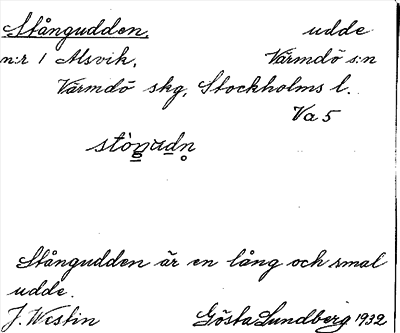 Stångudden, udde
n:r 1 Alsvik, Värmdö s:n
Värmdö skg, Stockholms l.
Va 5
Stångudden är en lång och smal
udde.
J. Westin Gösta Lundberg 1932